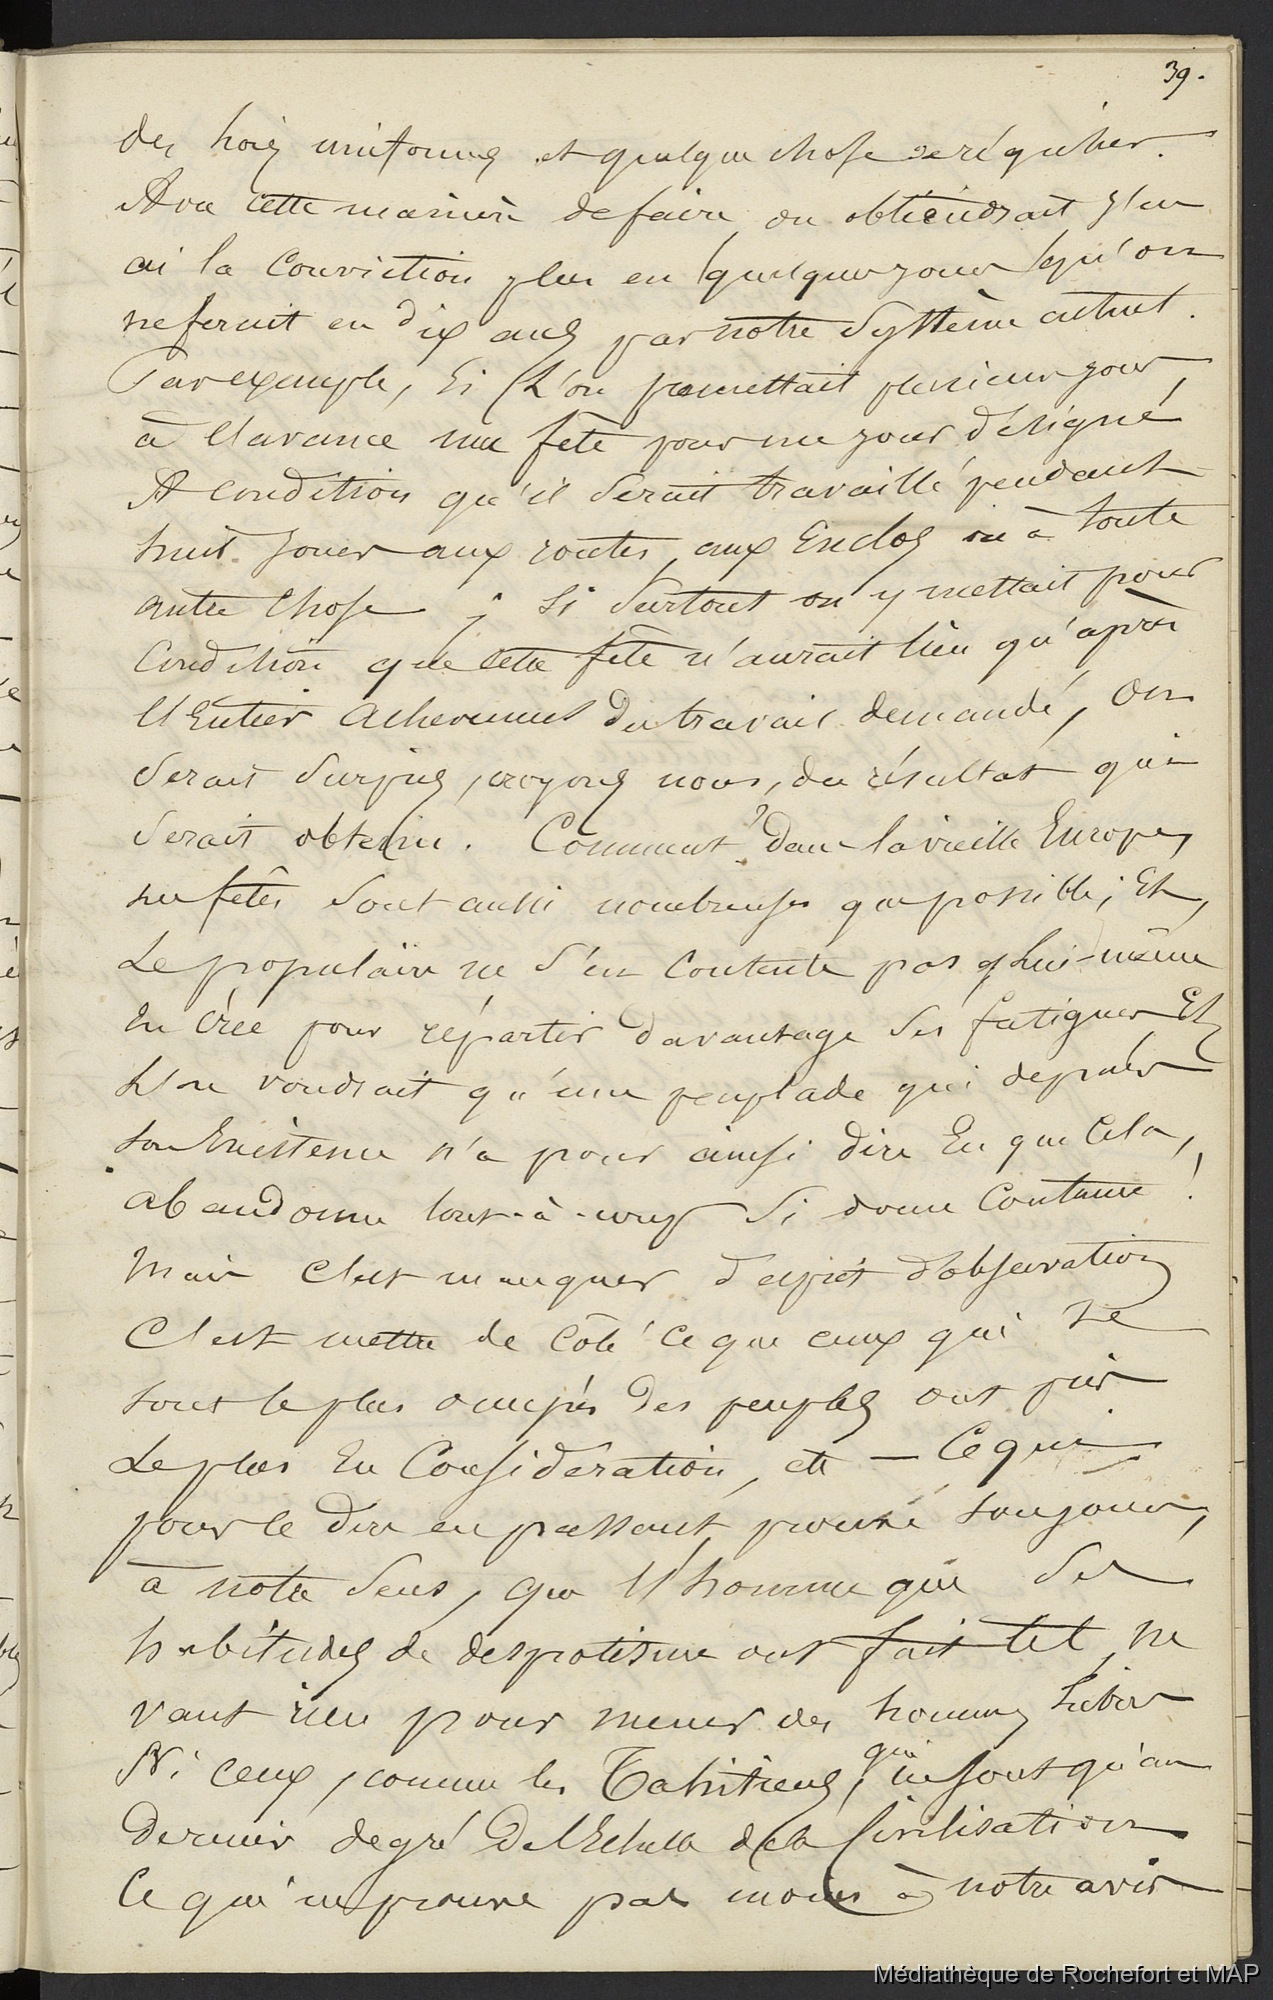 39.
des lois uniformes et quelque chose de régulier.
Avec cette manière de faire on obtiendrait j'en
ai la Conviction plus en quelques jours qu'on
ne ferait en dix ans par notre système actuel.
Par exemple, si l'on promettait plusieurs jours,
à l'avance une fête pour un jour désigné
A condition qu'il serait travaillé pendant
huit jours aux routes, aux Enclos ou à toute
autre Chose ; si surtout on y mettait pour
Condition que cette fête n'aurait lieu qu'après
l'Entier achevement du travail demandé, on
serait surpris, croyons nous, du résultat qui
serait obtenu. Comment ? dans la vieille Europe,
les fêtes sont aussi nombreuses que possible ; Et,
Le populaire ne s'en contente pas, lui-même
En crée pour répartir davantage ses fatigues Et
L'on voudrait qu'une peuplade qui depuis
son Existence n'a pour ainsi dire Eu que Cela,
abandonne tout-à-coup si douce Coutume !
Mais C'est manquer d'esprit d'observation
C'est mettre de Côté ce que ceux qui se
sont le plus occupés des peuples ont pris
Le plus En Considération, etc — Ce qui
pour le dire en passant, prouve toujours,
à notre sens, que l'homme que des
habitudes de despotisme ont fait tel, ne
vaut rien pour mener des hommes Libres
Ni ceux, comme les Tahitiens, qui ne sont qu'au
dernier degré De l'Echelle de la Civilisation
Ce qui ne prouve pas moins à notre avis
Médiathèque de Rochefort et MAP